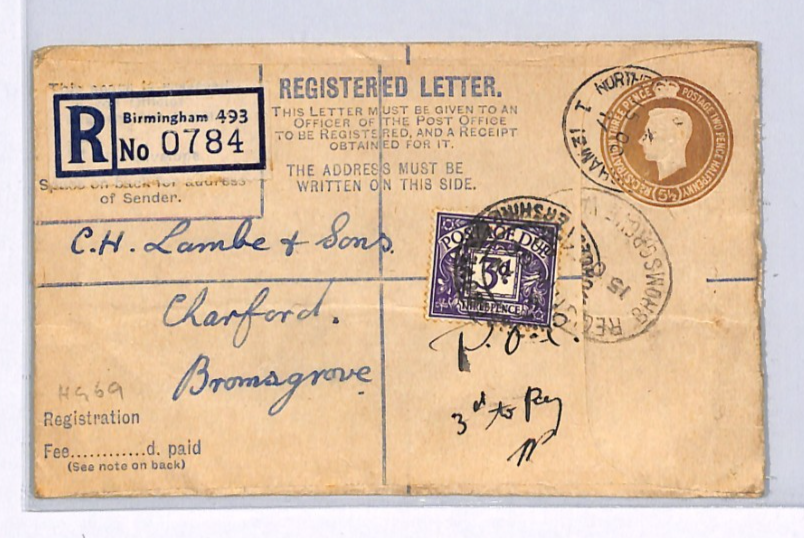 REGISTERED LETTER.
THIS LETTER MUST BE GIVEN TO AN
OFFICER OF THE POST OFFICE
TO BE REGISTERED, AND A RECEIPT
OBTAINED FOR IT.
THE ADDRESS MUST BE
WRITTEN ON THIS SIDE.
R
Birmingham 493
No 0784
of Sender.
POSTAGE TWO PENCE HALFPENNY
THREE PENCE
(5½)
C.H. Lambe & Sons.
Charford.
Bromsgrove
POSTAGE DUE
3d.
THREE PENCE
BROMSGROVE
15
3d to Pay
HG69
Registration
Fee............d. paid
(See note on back)